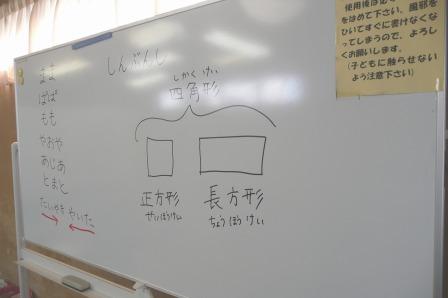 まま
ぱぱ
もも
やおや
あじあ
とまと
たいやき やいた
しんぶんし
しかくけい
四角形
正方形
せいほうけい
長方形
ちょうほうけい
使用後は必ず
をはめて下さい。風邪を
ひいてすぐに書けなくな
ってしまうので、よろしく
お願いします。
(子どもに触らせない
よう注意下さい)